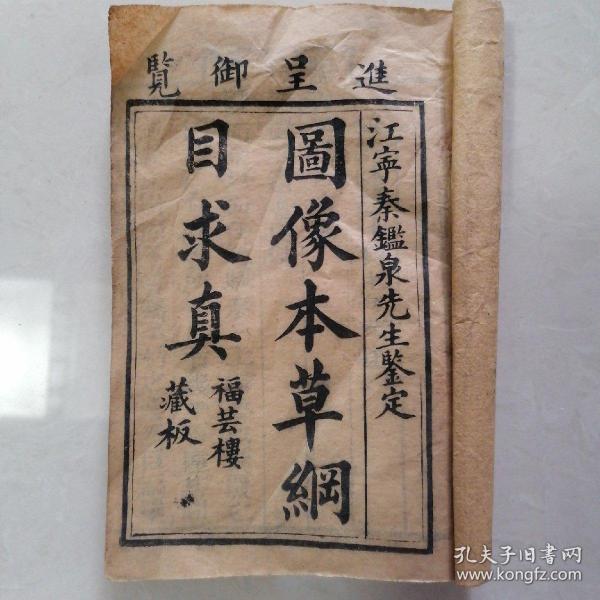 進呈御覽
江寧秦鑑泉先生鑒定
圖像本草綱
目求真
福芸樓
藏板
孔夫子旧书网
www.kongfz.com